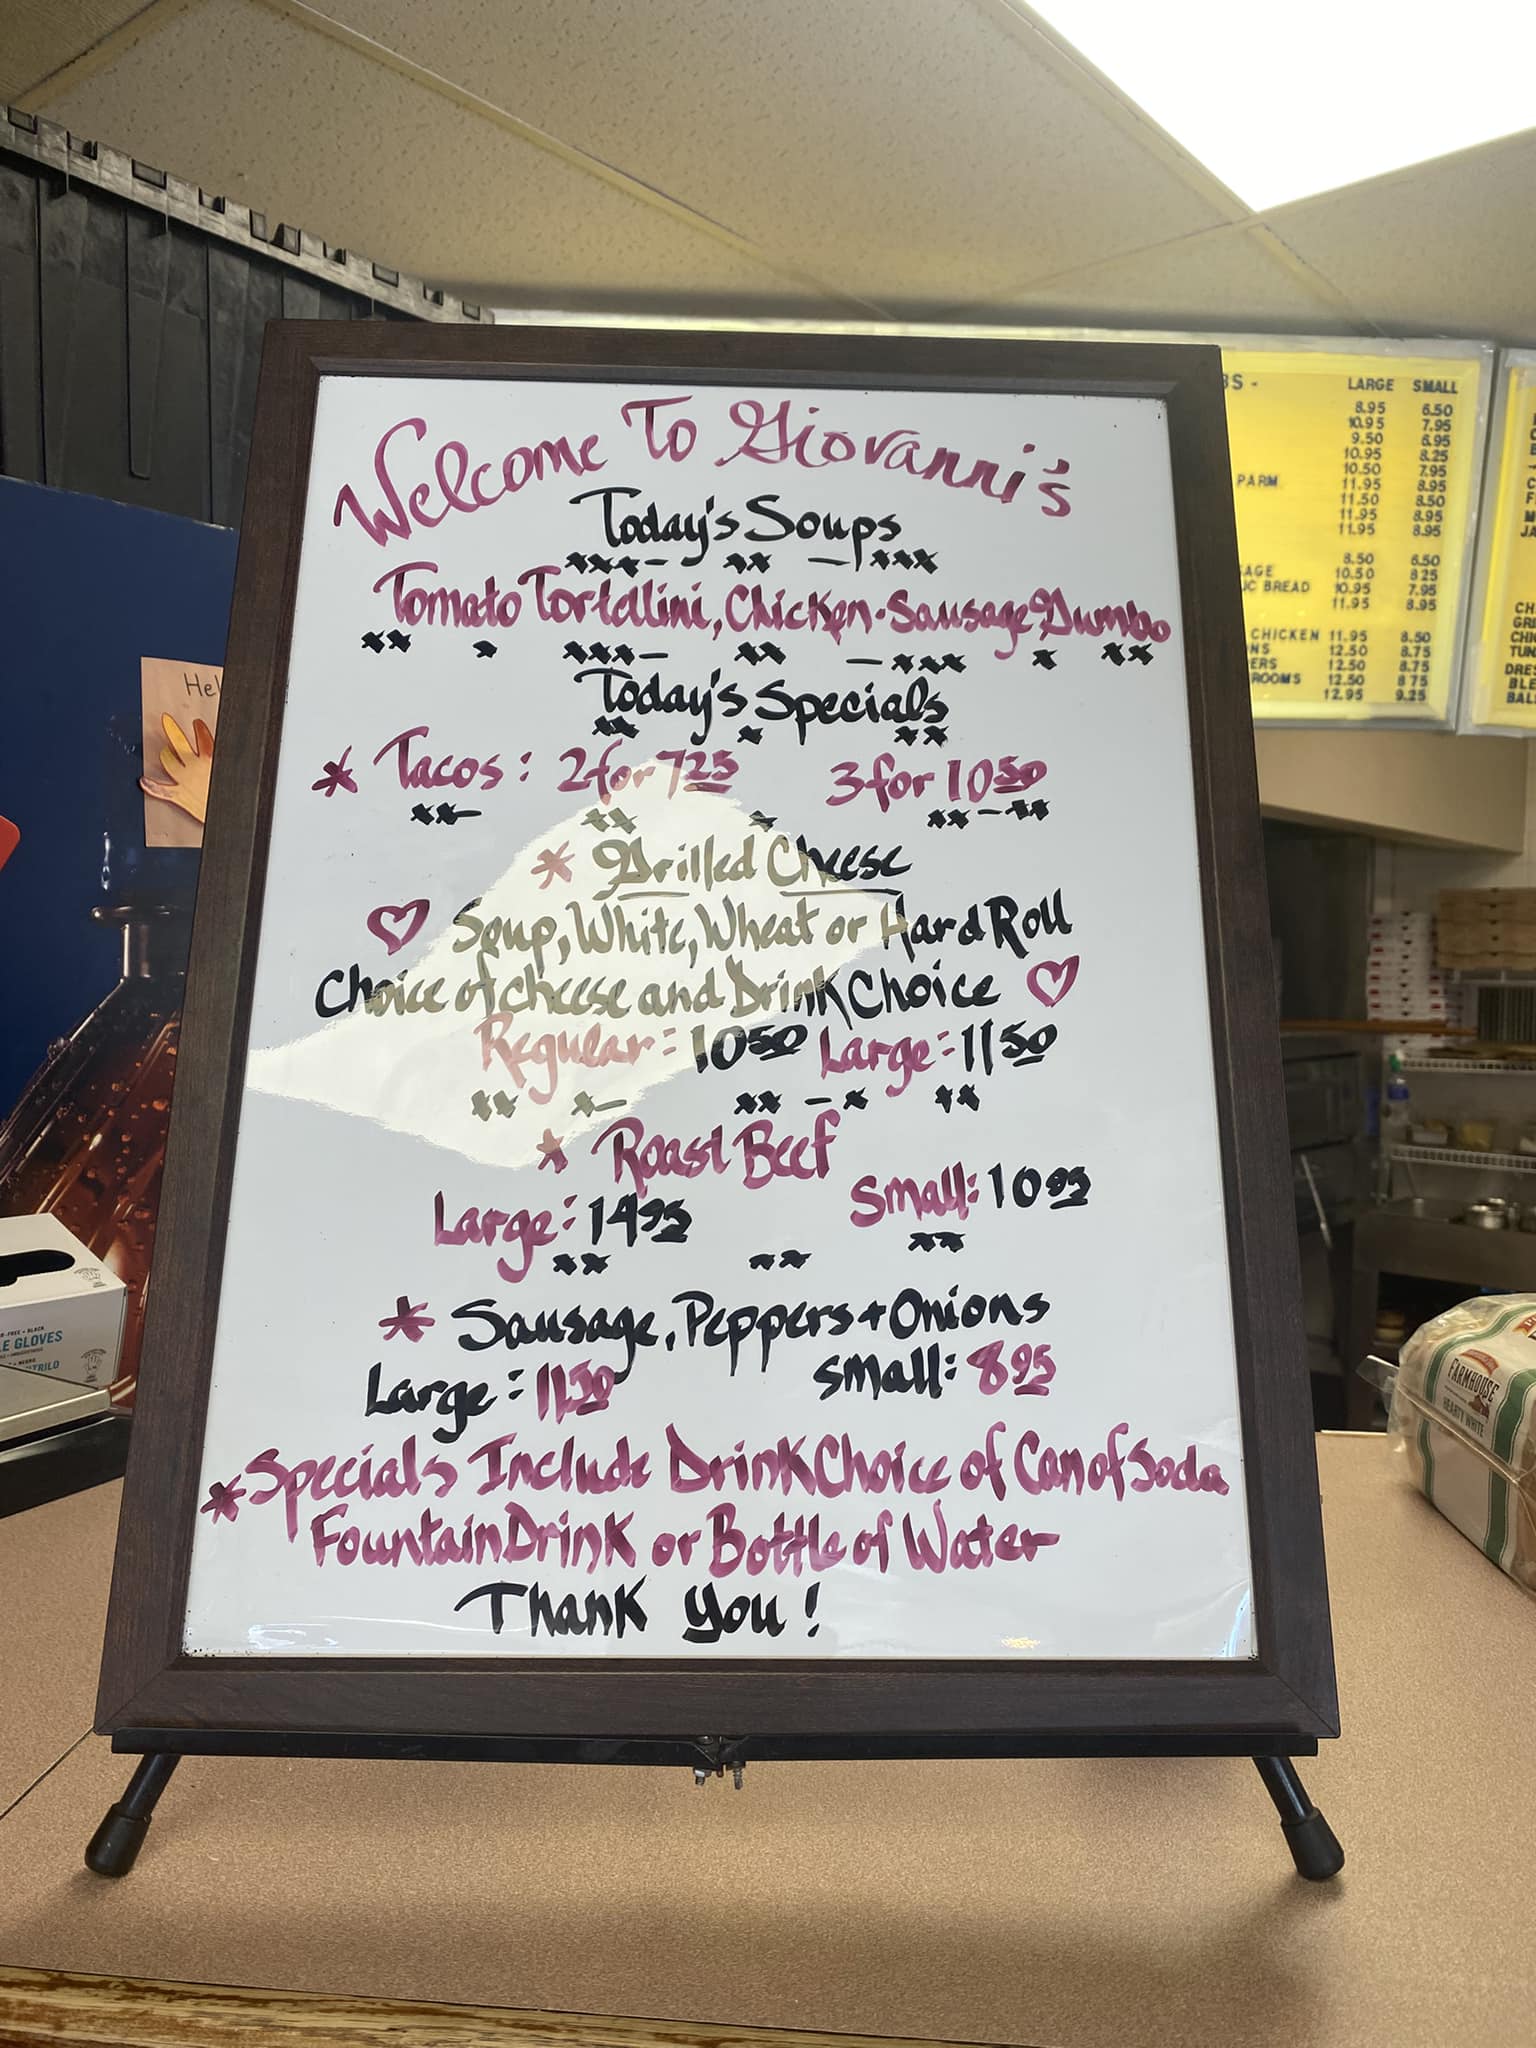 Welcome To Giovanni's
Today's Soups
Tomato Tortellini, Chicken-Sausage Gumbo
Today's Specials
* Tacos: 2 for 7 25 3 for 10 50
* Grilled Cheese
Soup, White, Wheat or Hard Roll
Choice of cheese and Drink Choice
Regular: 10 50 Large: 11 50
* Roast Beef
Large: 14 95 Small: 10 95
* Sausage, Peppers + Onions
Large: 11.50 Small: 8 95
* Specials Include Drink Choice of Can of Soda
Fountain Drink or Bottle of Water
Thank You!
BS - LARGE SMALL
8.95 6.50
10.95 7.95
9.50 6.95
10.95 8.25
10.50 7.95
PARM 11.95 8.95
11.50 8.50
11.95 8.95
11.95 8.95
8.50 6.50
AGE 10.50 8.25
IC BREAD 10.95 7.95
11.95 8.95
CHICKEN 11.95 8.50
NS 12.50 8.75
ERS 12.50 8.75
ROOMS 12.50 8.75
12.95 9.25
JA
CH
GRI
CHI
TUN
DRES
BLE
BAL
Hel
E GLOVES
TRILO
FARMHOUSE
HEARTY WHITE